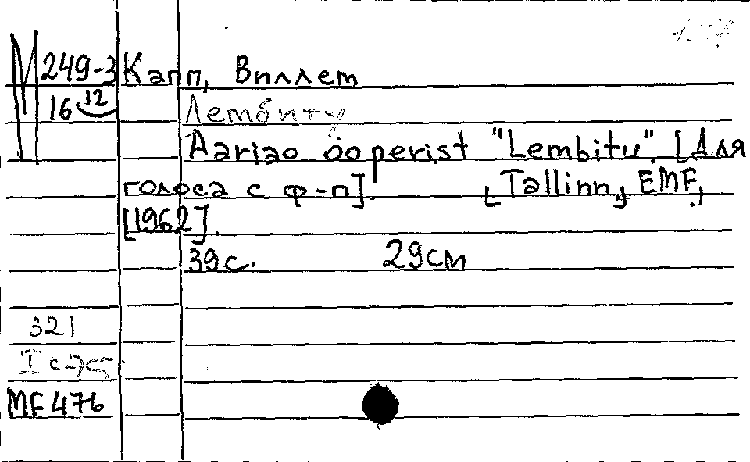 М 249-3 Капп, Виллет
16 12
Лембиту
Aariao ooperist "Lembitu". [Для
голоса с ф-п] [Tallinn,] EMF,
[1962].
39с. 29см
321
MF 476